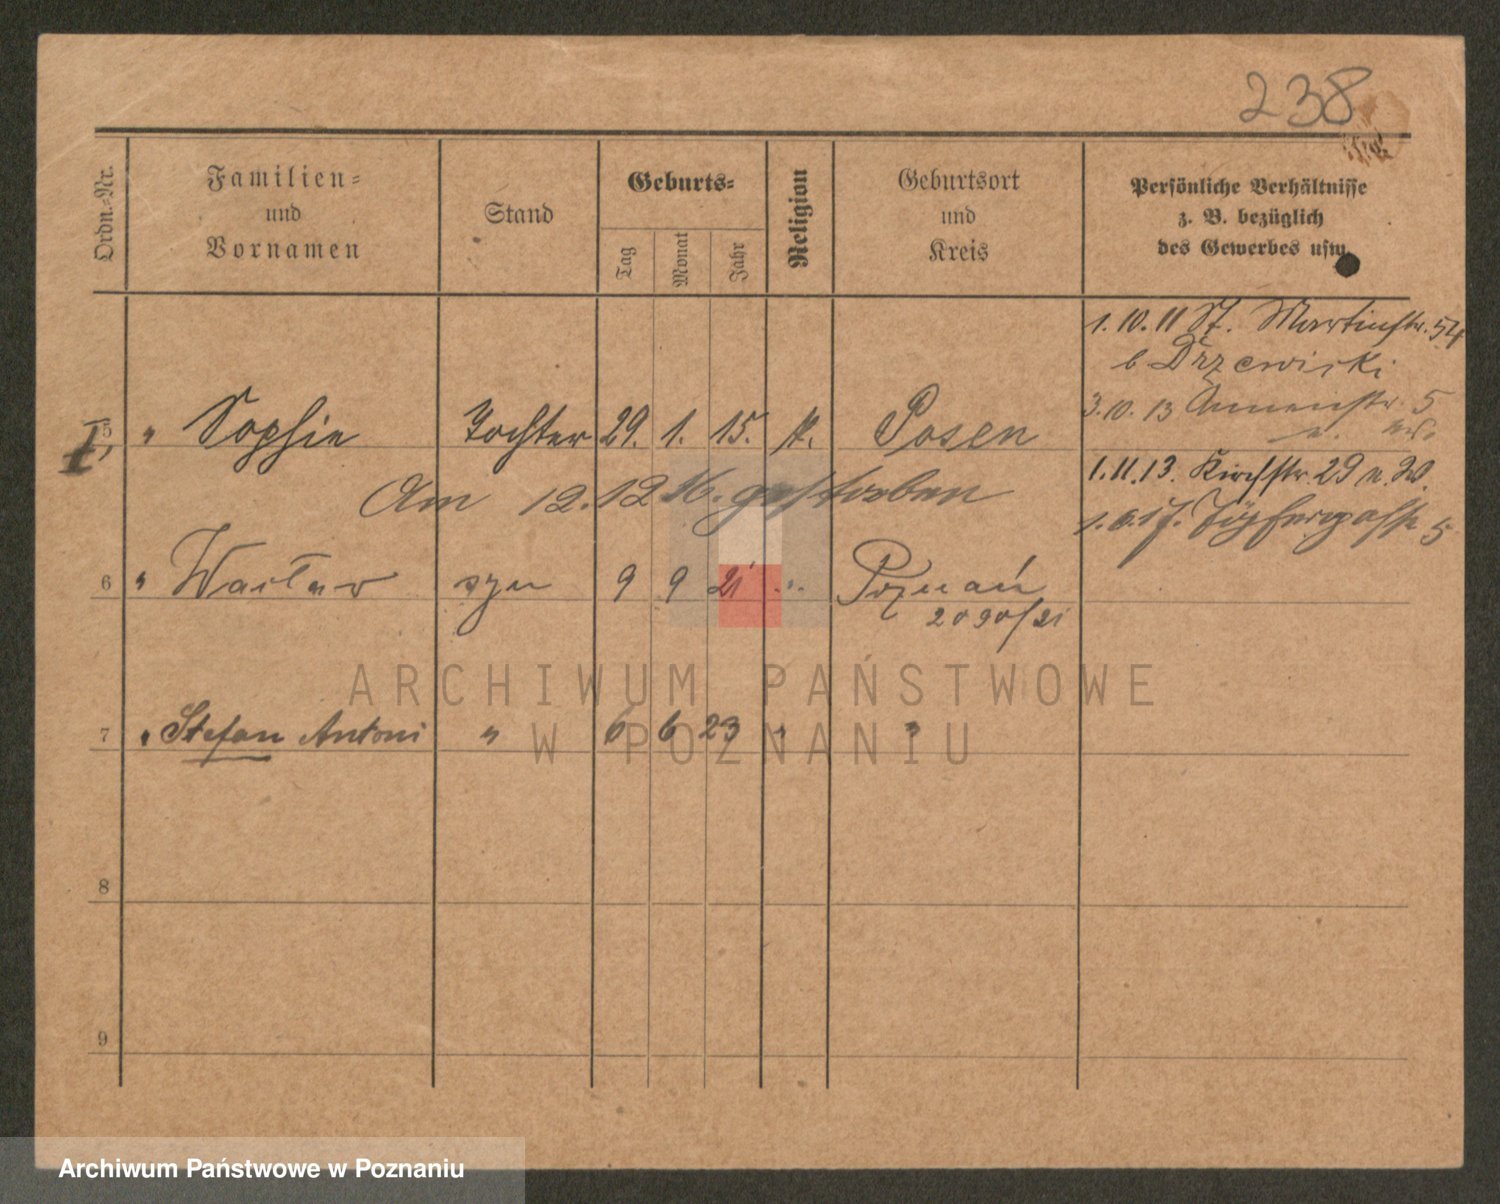 238
Ordn.-Nr.
Familien-
und
Vornamen
Stand
Geburts-
Tag
Monat
Jahr
Religion
Geburtsort
und
Kreis
Persönliche Verhältnisse
z. B. bezüglich
des Gewerbes usw.
1. 10. 11 St. Martinstr. 54
b Drzewiski
3. 10. 13 Annenstr. 5
5 " Sophie Tochter 29. 1. 15. k. Posen
1. 11. 13. Kirchstr. 29 n. W.
Am 12. 12. 16. gestorben
1. 6. 17. Töpfergasse 5
6 " Wacław syn 9 9 21 " Poznań
2090/21
7 " Stefan Antoni " 6 6 23 " "
8
9
ARCHIWUM PAŃSTWOWE
W POZNANIU
Archiwum Państwowe w Poznaniu